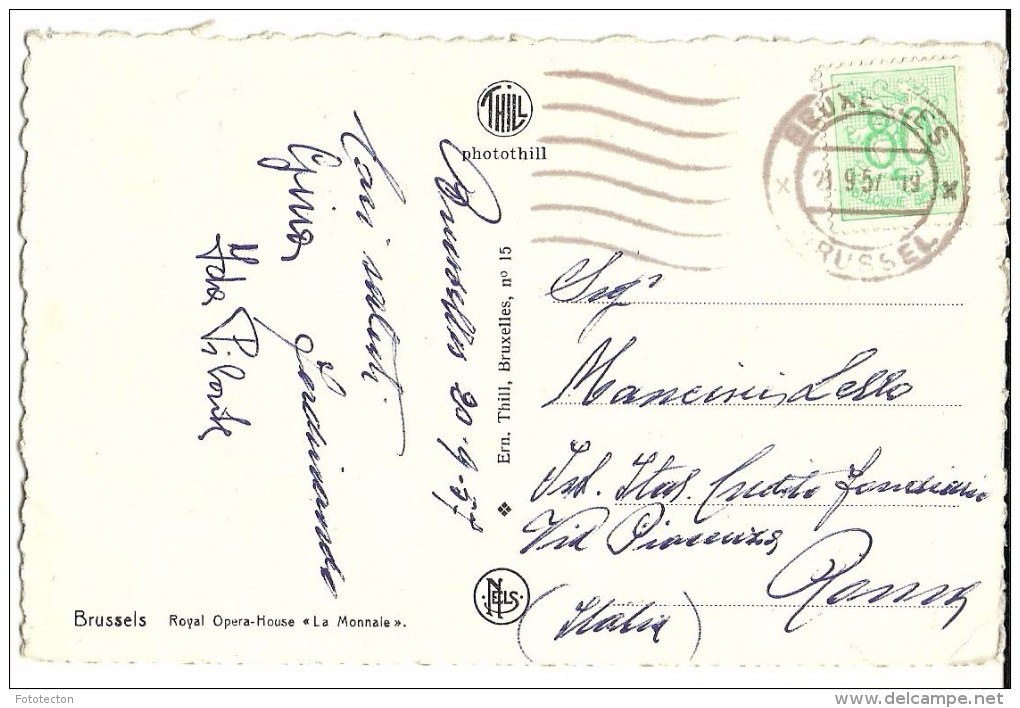 Bruxelles 20-9-57
Cari saluti.
Gino Ferdinando
Ida
THILL
photothill
Ern. Thill, Bruxelles, nº 15
NELS
BRUXELLES
21.9.57 19
BRUSSEL
80
BELGIQUE BE
Sigr
Mancini Lello
Ist. Ital. Credito Fondiario
Via Piacenza
Roma
(Italia)
Brussels Royal Opera-House « La Monnaie ».
Fototecton
www.delcampe.net